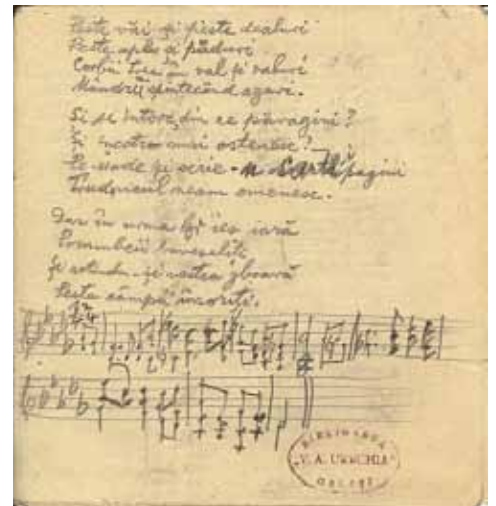 Peste văi și peste dealuri
Peste ape și păduri
Corbii trec în val și valuri
Mândrii spintecând azuri.
Și se întorc din ce paragini?
Și încotro mai ostenesc?
Ce vede și scrie-n pagini
Trudnicul neam omenesc.
Dar în urma lor ies iară
Porumbeii
Și astendu-și zboară
Peste câmpii înverziți.
BIBLIOTECA
"V. A. URECHIA"
GALAȚI